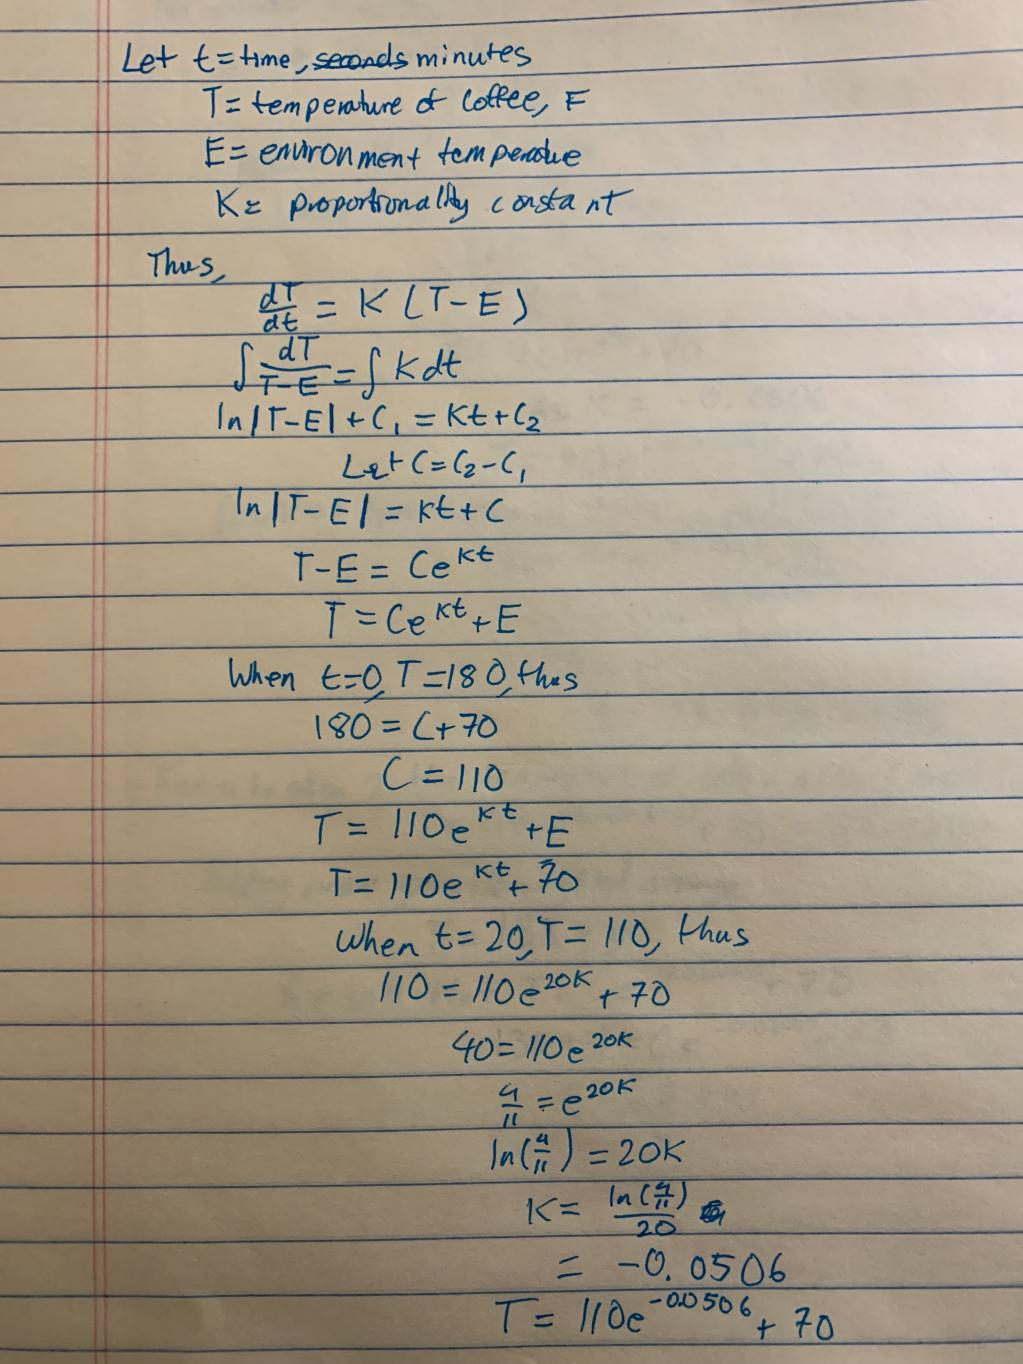 Let t = time, seconds minutes
T = temperature of Coffee, F
E = environment temperature
K = proportionality constant
Thus,
dT/dt = K (T-E)
∫ dT/T-E = ∫ K dt
ln|T-E| + C₁ = Kt + C₂
Let C = C₂ - C₁
ln|T-E| = Kt + C
T-E = Ce^Kt
T = Ce^Kt + E
When t=0, T=180, thus
180 = C + 70
C = 110
T = 110e^Kt + E
T = 110e^Kt + 70
When t = 20, T = 110, thus
110 = 110e^20K + 70
40 = 110e^20K
4/11 = e^20K
ln(4/11) = 20K
K = ln(4/11)/20
= -0.0506
T = 110e^-0.0506 + 70